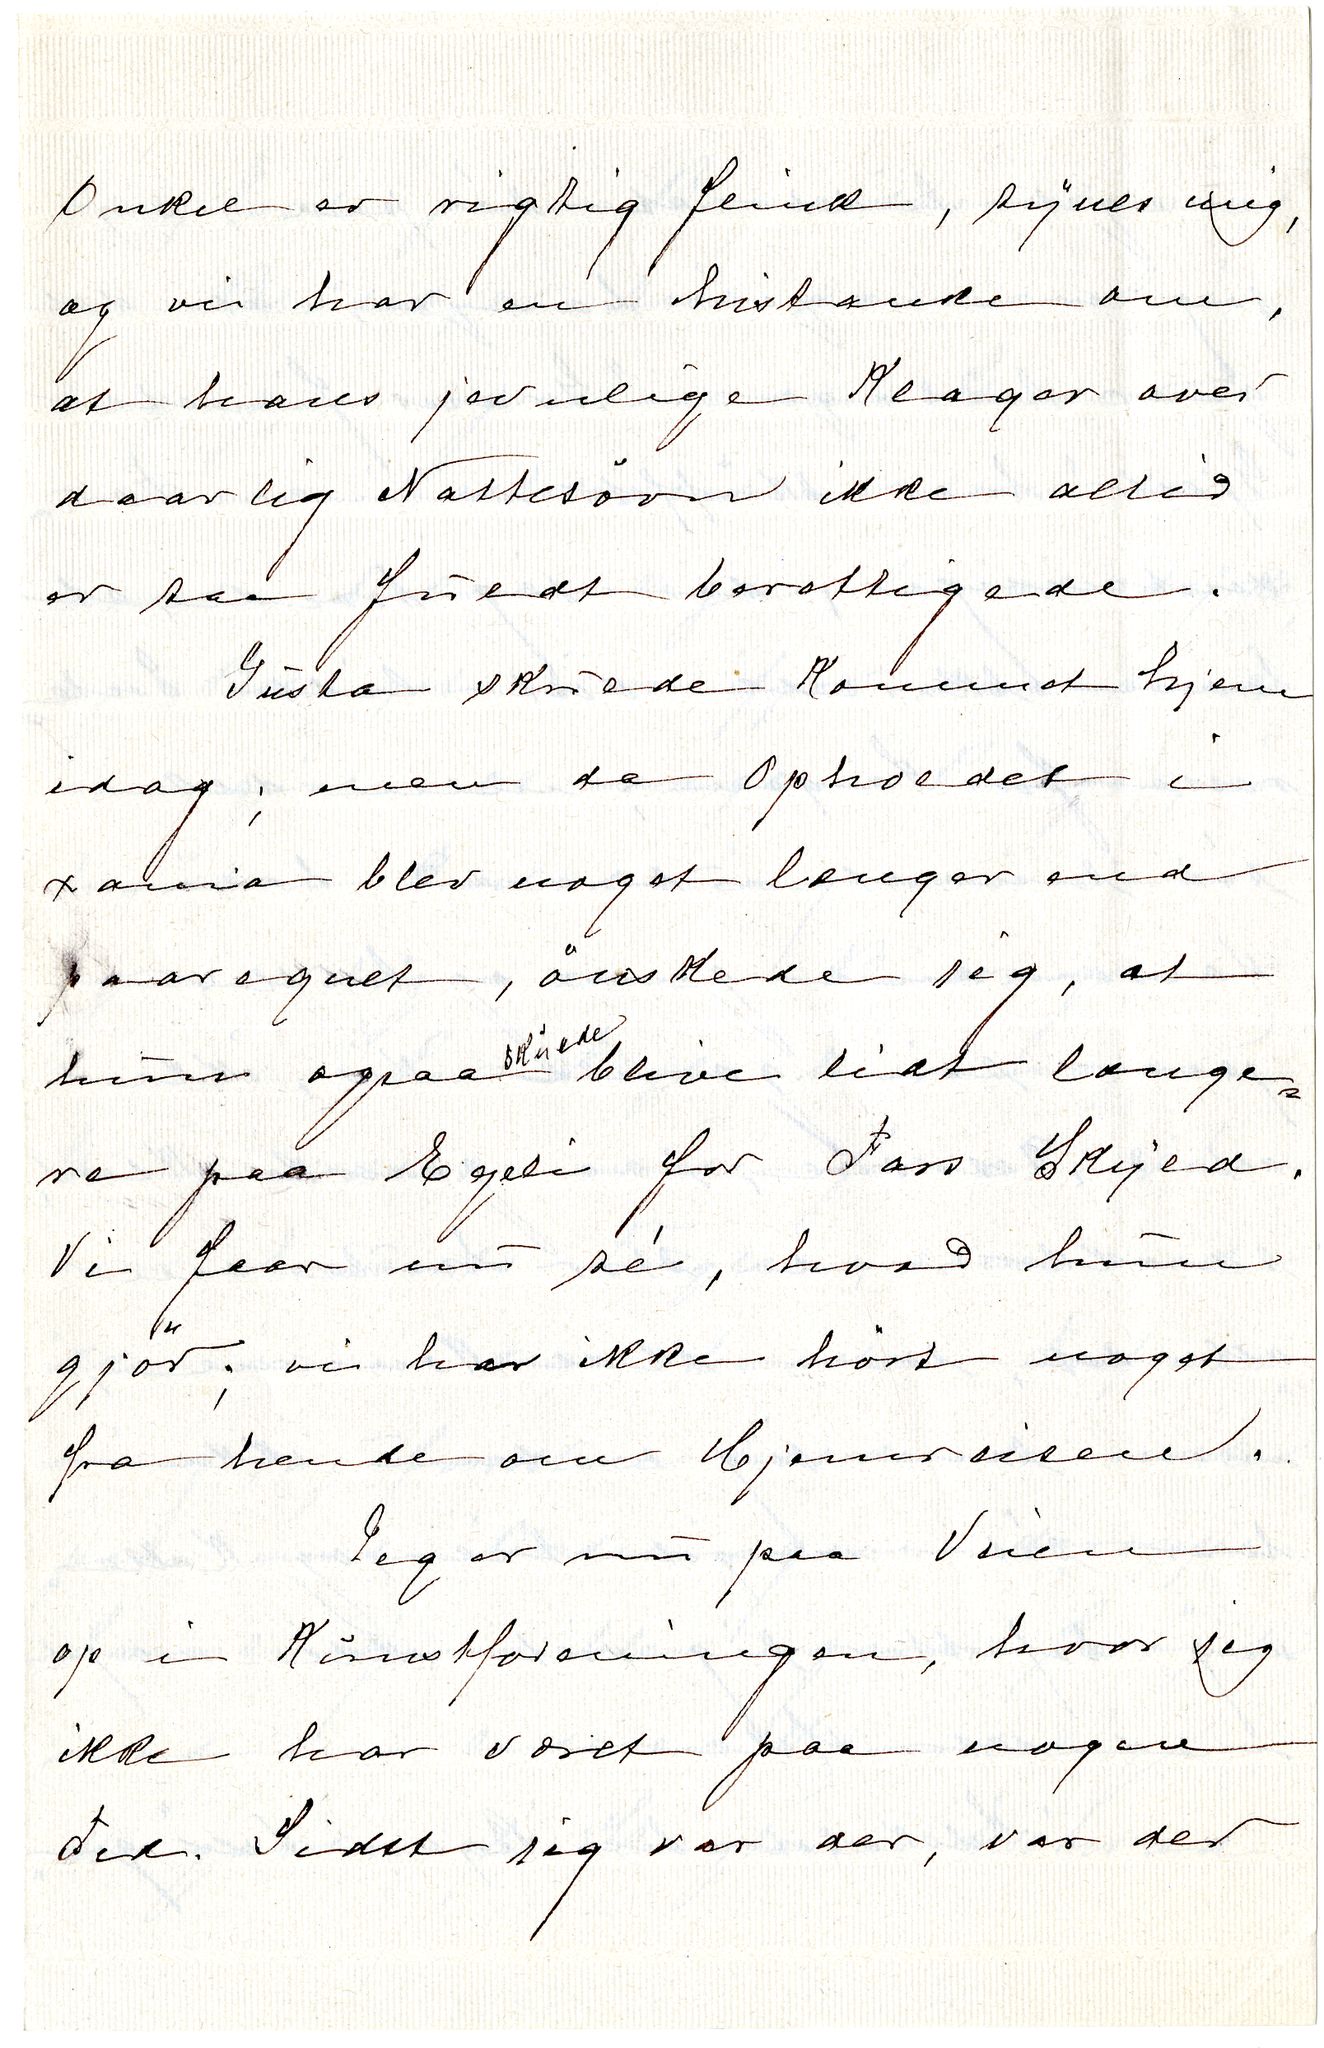 Onkel er rigtig flink, synes mig,
og vi har en Mistanke om,
at hans jevnlige Klager over
daarlig Nattesövn ikke altid
er saa fuldt berettigede.
Gusta skulde kommet hjem
idag; men da Opholdet i
Xania blev noget længer end
paaregnet, önskede jeg, at
hun ogsaa skulde blive lidt længe=
re paa Egeli for Fars Skyld.
Vi faar nu sé, hvad hun
gjör; vi har ikke hört noget
fra hende om Hjemreisen.
Jeg er nu paa Veien
op i Kunstforeningen, hvor jeg
ikke har været paa nogen
Tid. Sidst jeg var der, var der